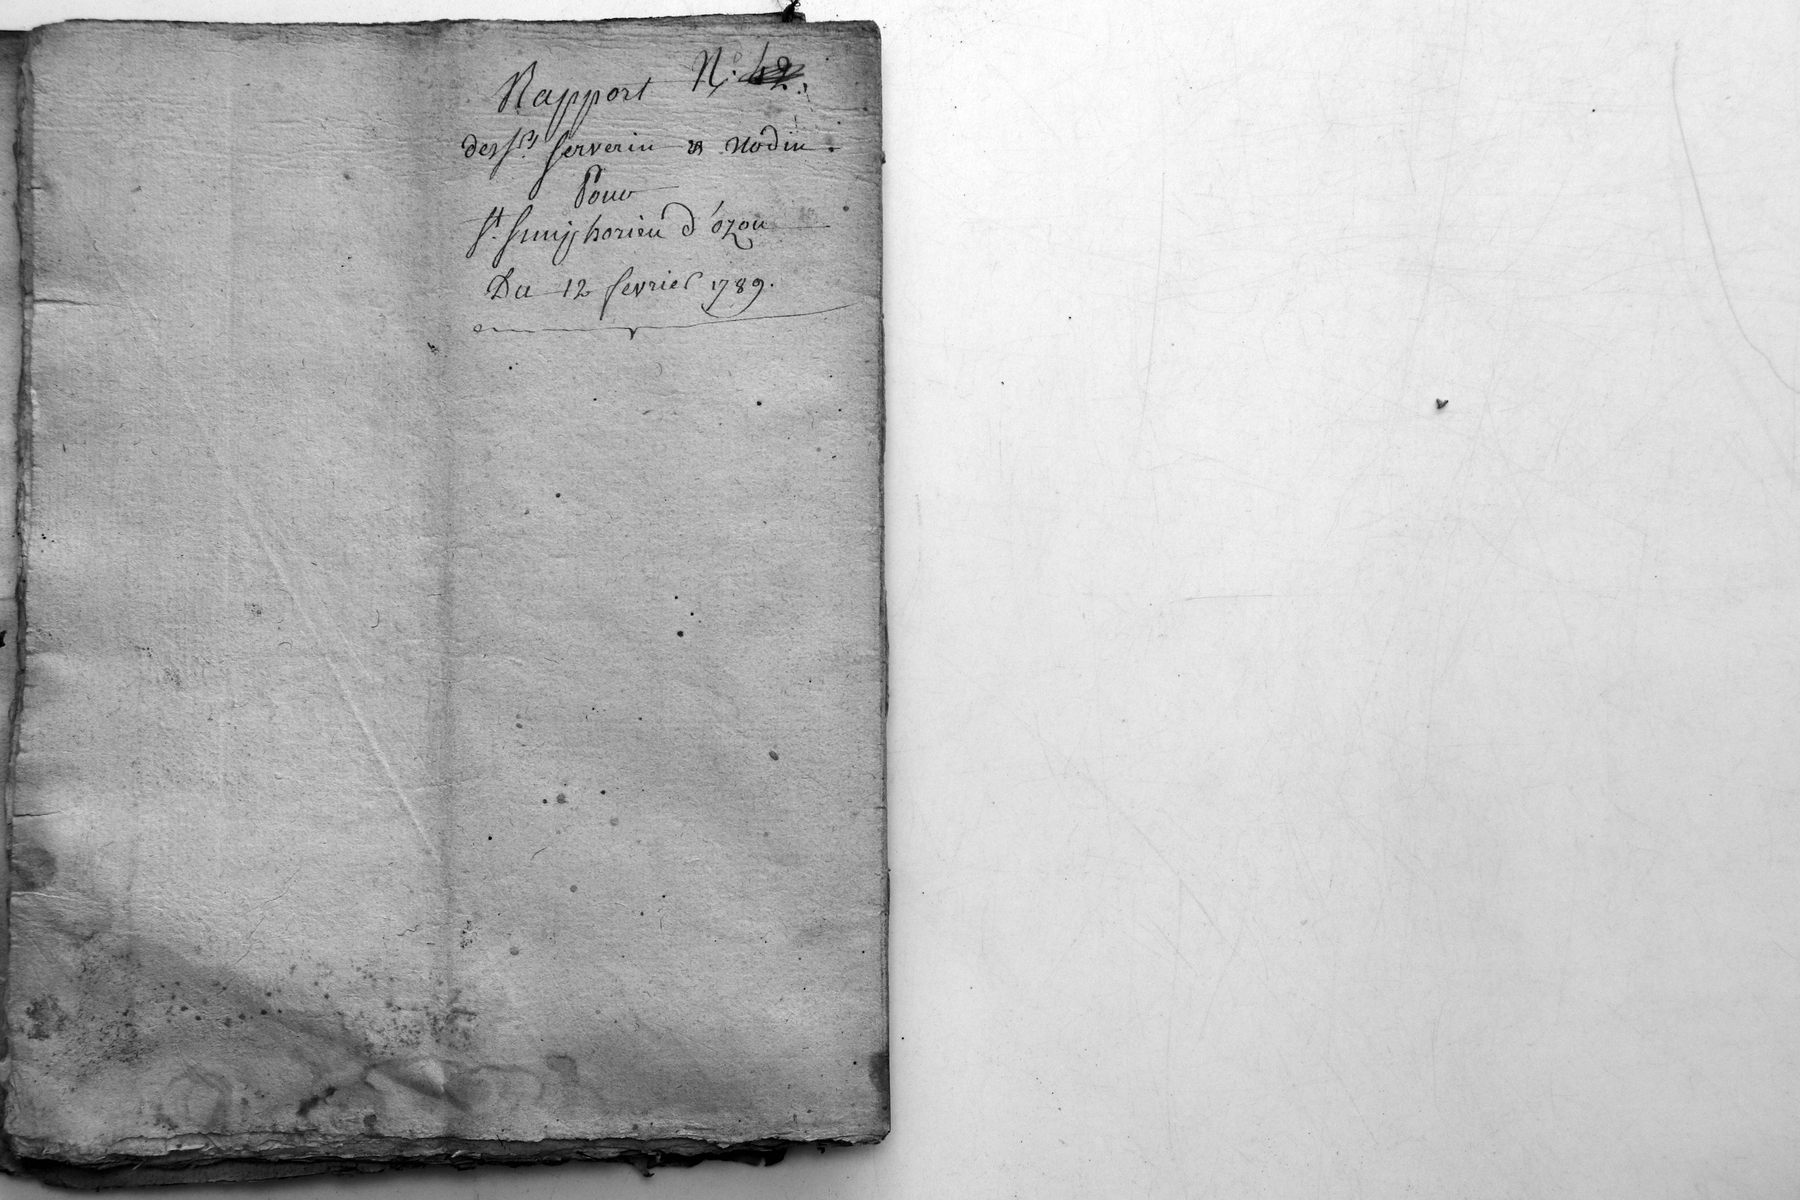 N.° 42.
Rapport
des srs. serverin & Nodin.
Pour
st. simphorien d'ozon
Du 12 fevrier 1789.